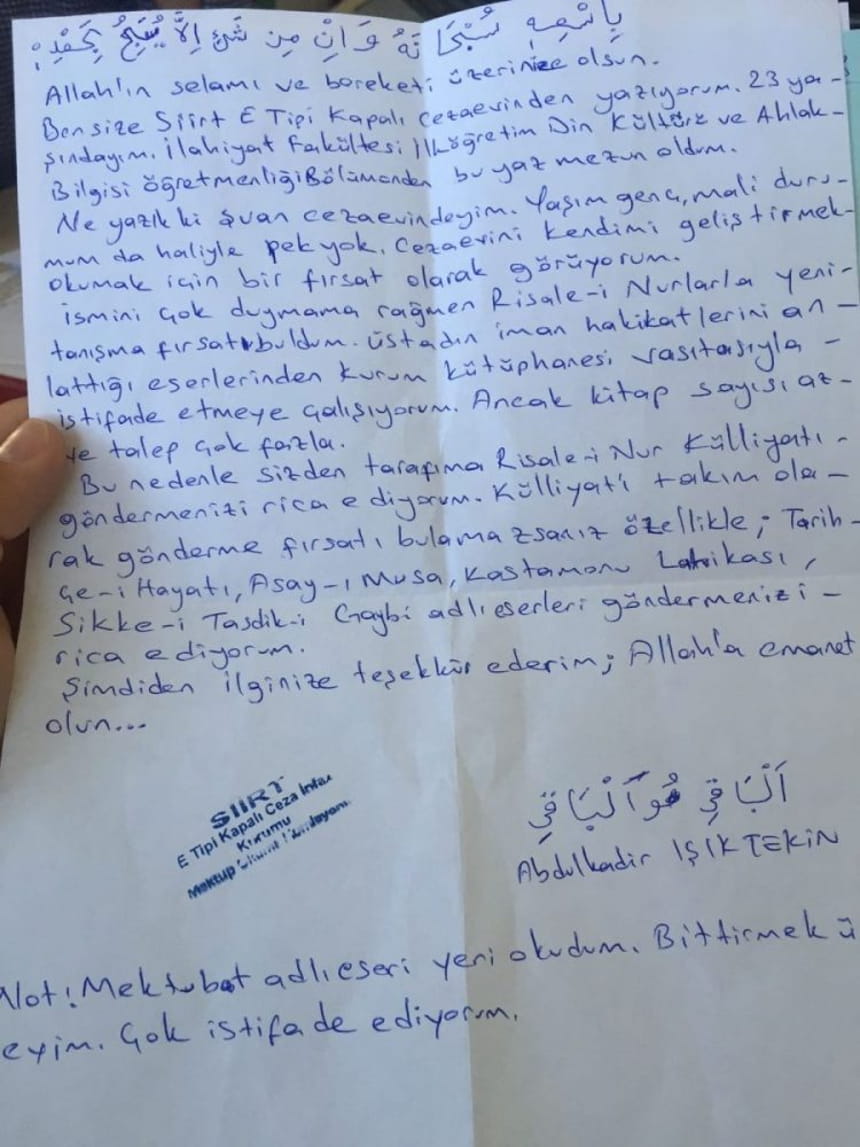 بِاسْمِهِ سُبْحَانَهُ وَاِنْ مِنْ شَىْءٍ اِلاَّ يُسَبِّحُ بِحَمْدِهِ
Allah'ın selamı ve bereketi üzerinize olsun.
Ben size Siirt E Tipi Kapalı Cezaevinden yazıyorum. 23 ya-
şındayım. İlahiyat Fakültesi İlköğretim Din Kültürü ve Ahlak-
Bilgisi Öğretmenliği Bölümünden bu yaz mezun oldum.
Ne yazık ki şuan cezaevindeyim. Yaşım genç, mali duru-
mum da haliyle pek yok. Cezaevini kendimi geliştirmek-
okumak için bir fırsat olarak görüyorum.
ismini çok duymama rağmen Risale-i Nurlarla yeni-
tanışma fırsatı buldum. Üstadın iman hakikatlerini an-
lattığı eserlerinden kurum kütüphanesi vasıtasıyla -
istifade etmeye çalışıyorum. Ancak kitap sayısı az-
ve talep çok fazla.
Bu nedenle sizden tarafıma Risale-i Nur Külliyatı -
göndermenizi rica ediyorum. Külliyat'ı takım ola-
rak gönderme fırsatı bulamazsanız özellikle; Tarih-
çe-i Hayatı, Asay-ı Musa, Kastamonu Lahikası,
Sikke-i Tasdik-i Gaybi adlı eserleri göndermenizi -
rica ediyorum.
Şimdiden ilginize teşekkür ederim; Allah'a emanet
olun...
اَلْبَاقِي هُوَ الْبَاقِي
Abdulkadir IŞIKTEKİN
SİİRT
E Tipi Kapalı Ceza İnfaz
Kurumu
Mektup
Not: Mektubat adlı eseri yeni okudum. Bittirmek ü
eyim. Çok istifade ediyorum.